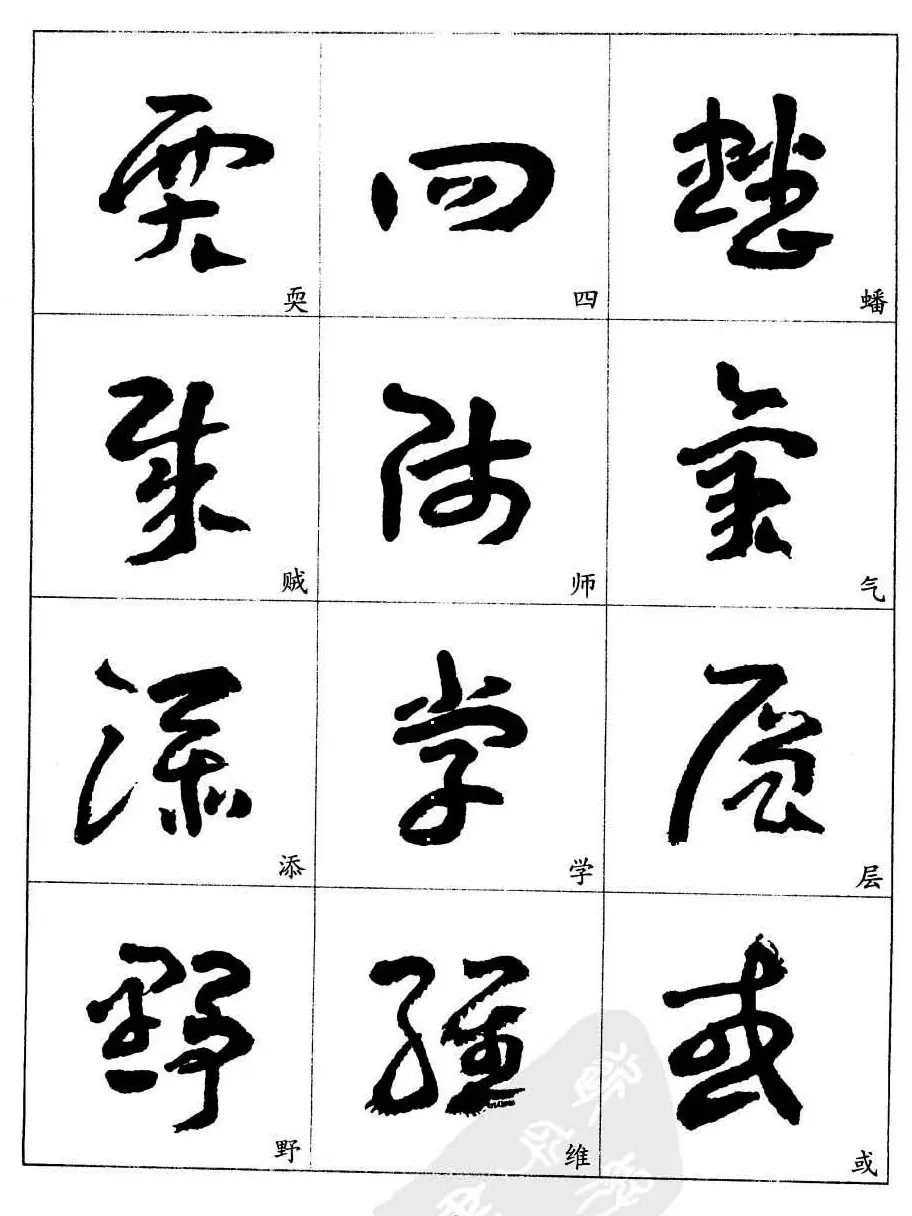 耎 四 蟠
贼 师 气
添 学 层
野 维 或